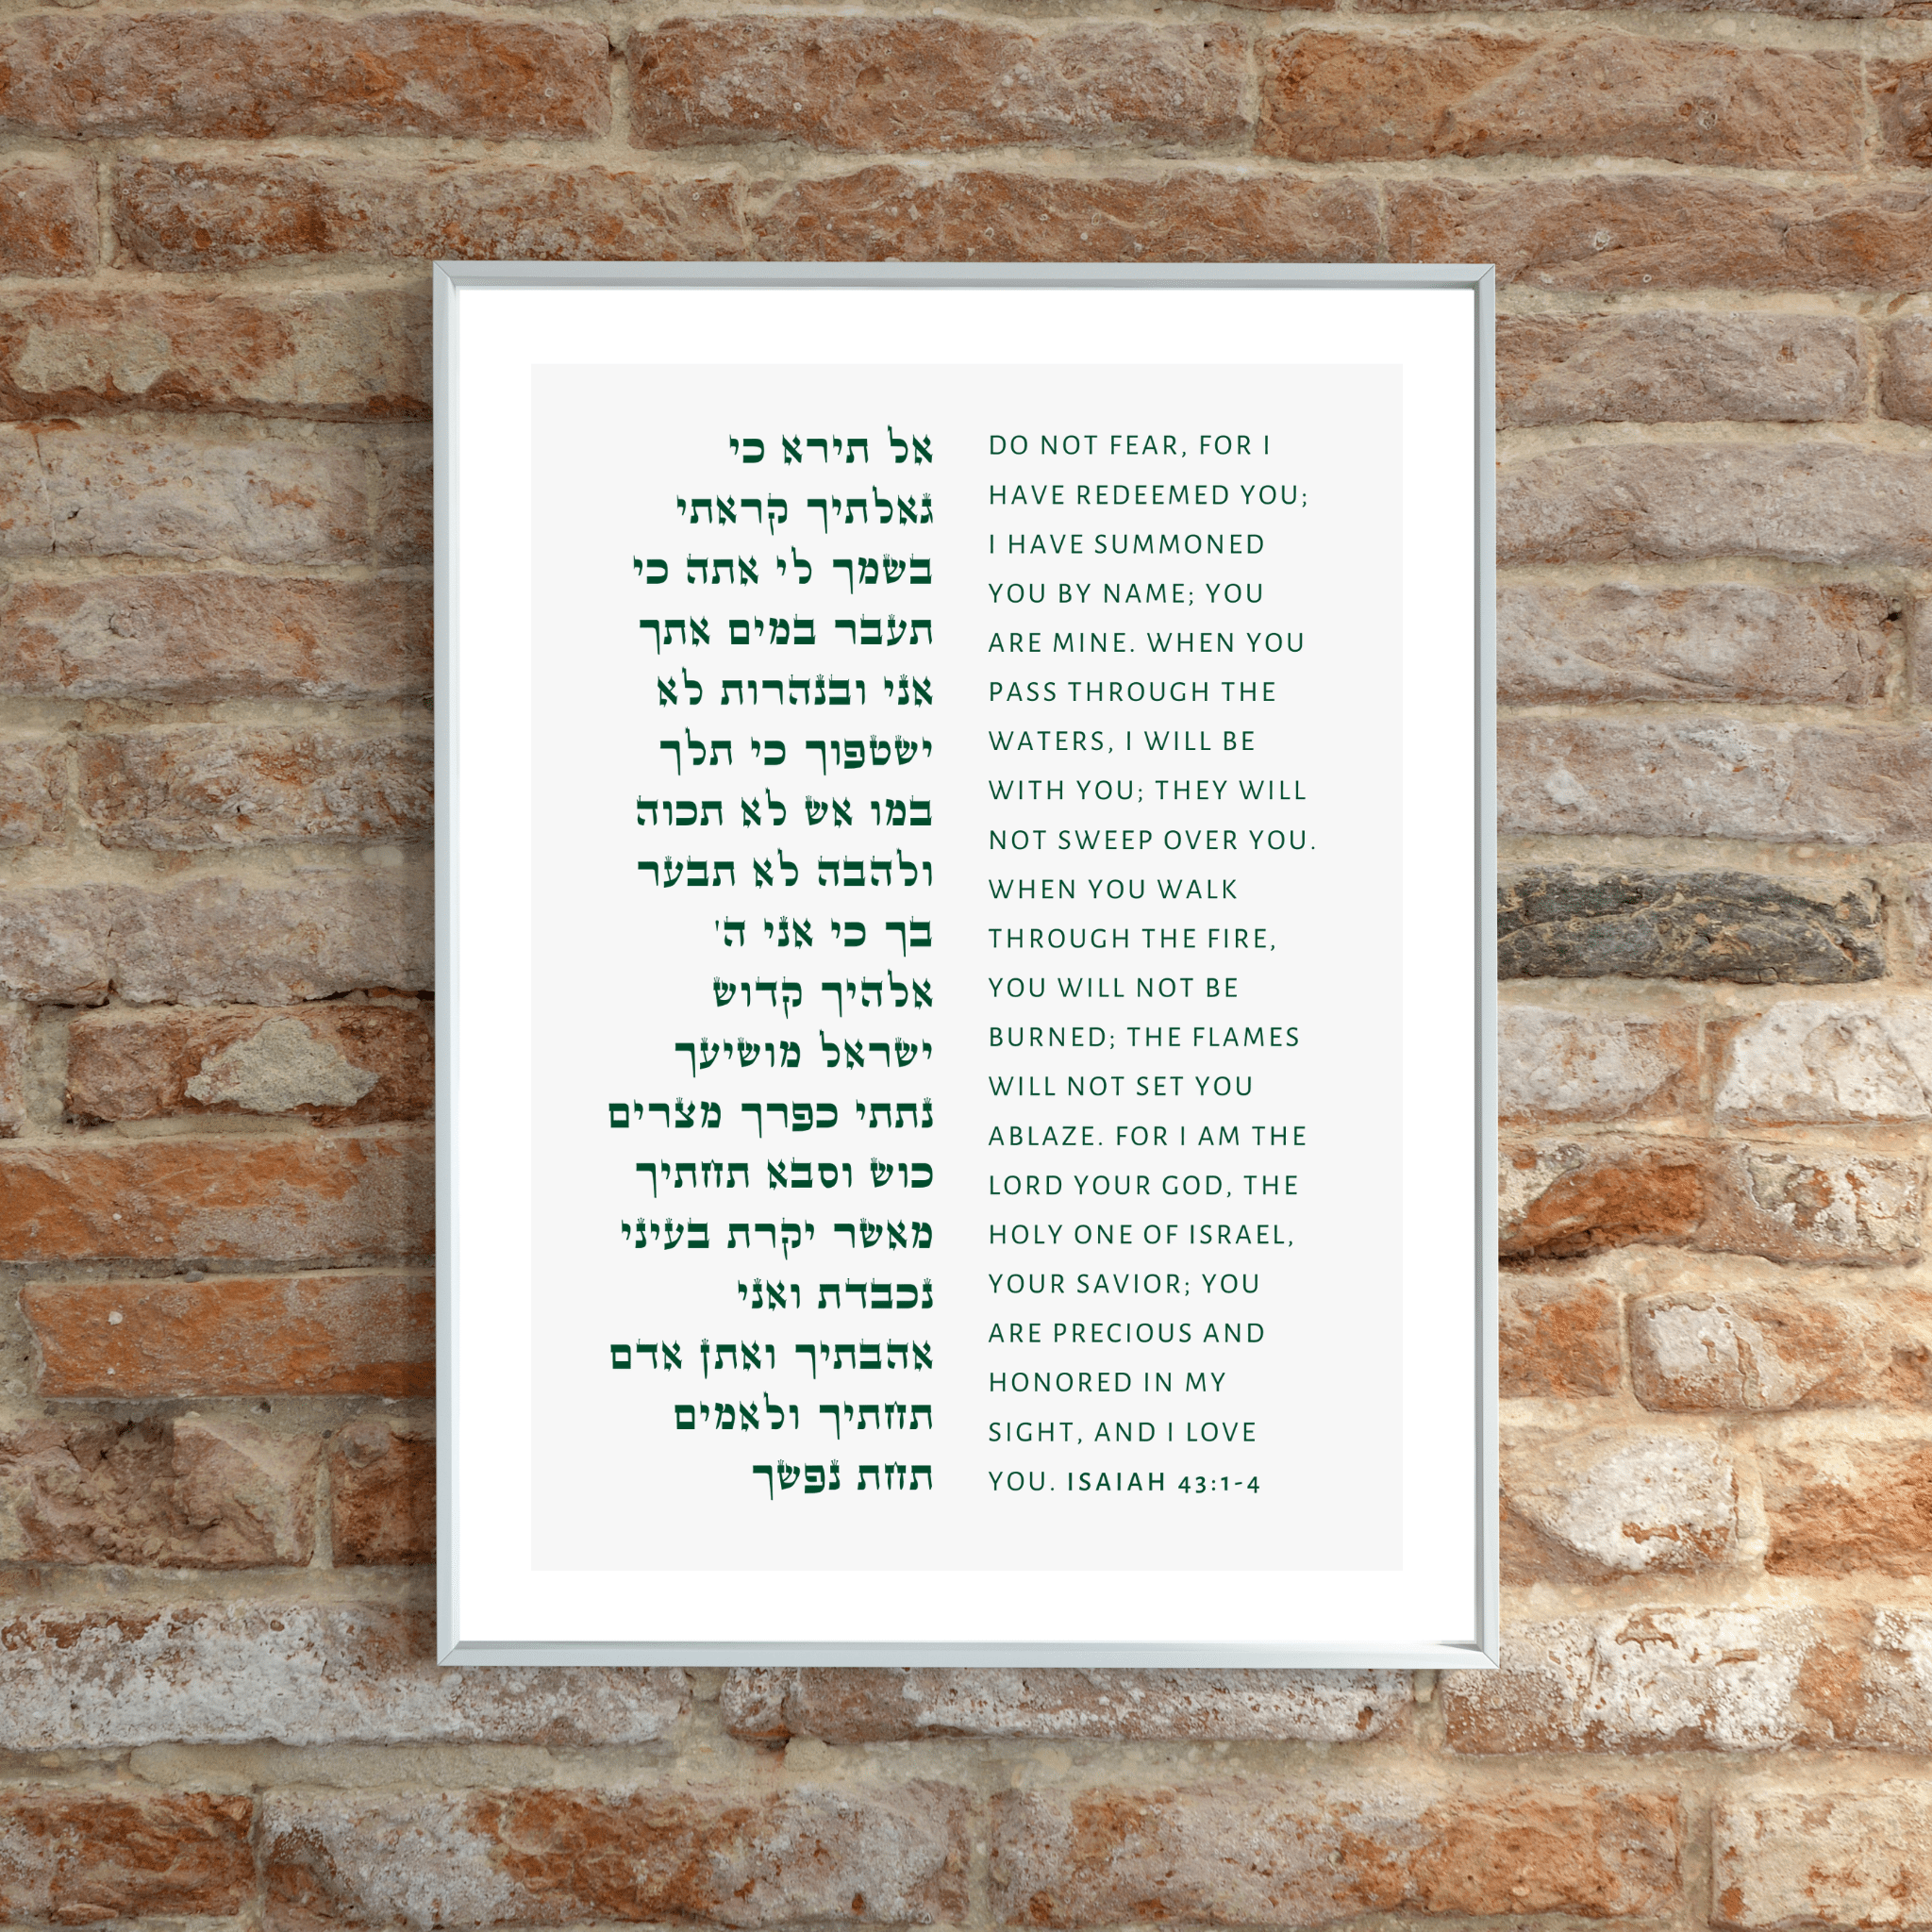 אל תירא כי
גאלתיך קראתי
בשמך לי אתה כי
תעבר במים אתך
אני ובנהרות לא
ישטפוך כי תלך
במו אש לא תכוה
ולהבה לא תבער
בך כי אני ה'
אלהיך קדוש
ישראל מושיעך
נתתי כפרך מצרים
כוש וסבא תחתיך
מאשר יקרת בעיני
נכבדת ואני
אהבתיך ואתן אדם
תחתיך ולאמים
תחת נפשך
DO NOT FEAR, FOR I
HAVE REDEEMED YOU;
I HAVE SUMMONED
YOU BY NAME; YOU
ARE MINE. WHEN YOU
PASS THROUGH THE
WATERS, I WILL BE
WITH YOU; THEY WILL
NOT SWEEP OVER YOU.
WHEN YOU WALK
THROUGH THE FIRE,
YOU WILL NOT BE
BURNED; THE FLAMES
WILL NOT SET YOU
ABLAZE. FOR I AM THE
LORD YOUR GOD, THE
HOLY ONE OF ISRAEL,
YOUR SAVIOR; YOU
ARE PRECIOUS AND
HONORED IN MY
SIGHT, AND I LOVE
YOU. ISAIAH 43:1-4